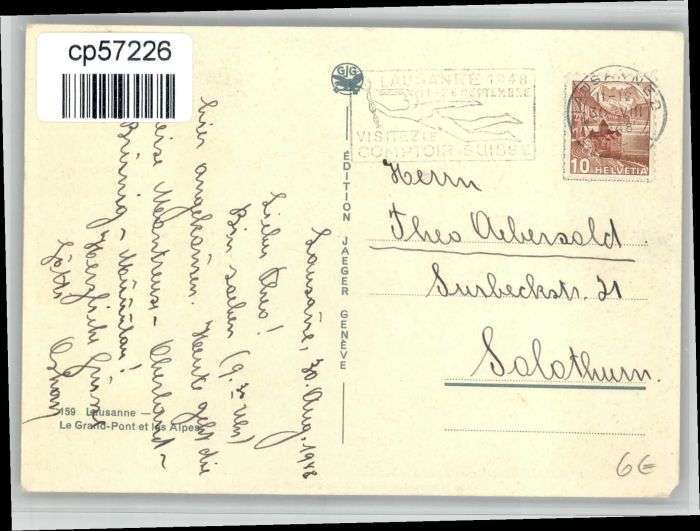 cp57226
GJG
LAUSANNE 1948
SEPTEMBRE
VISITEZ LE
COMPTOIR SUISSE
PAYERNE
10 HELVETIA
ÉDITION JAEGER GENÈVE
Herrn
Theo Aebersold
Surbeckstr. 21
Solothurn.
Lausanne, 30. Aug. 1948
Lieber Theo!
Bin soeben (9.
hier angekommen. Heute geht die
Reise Montreux - Oberland -
Brünig -
Herzliche Grüsse
Götti
159 Lausanne —
Le Grand-Pont et les Alpes
6€